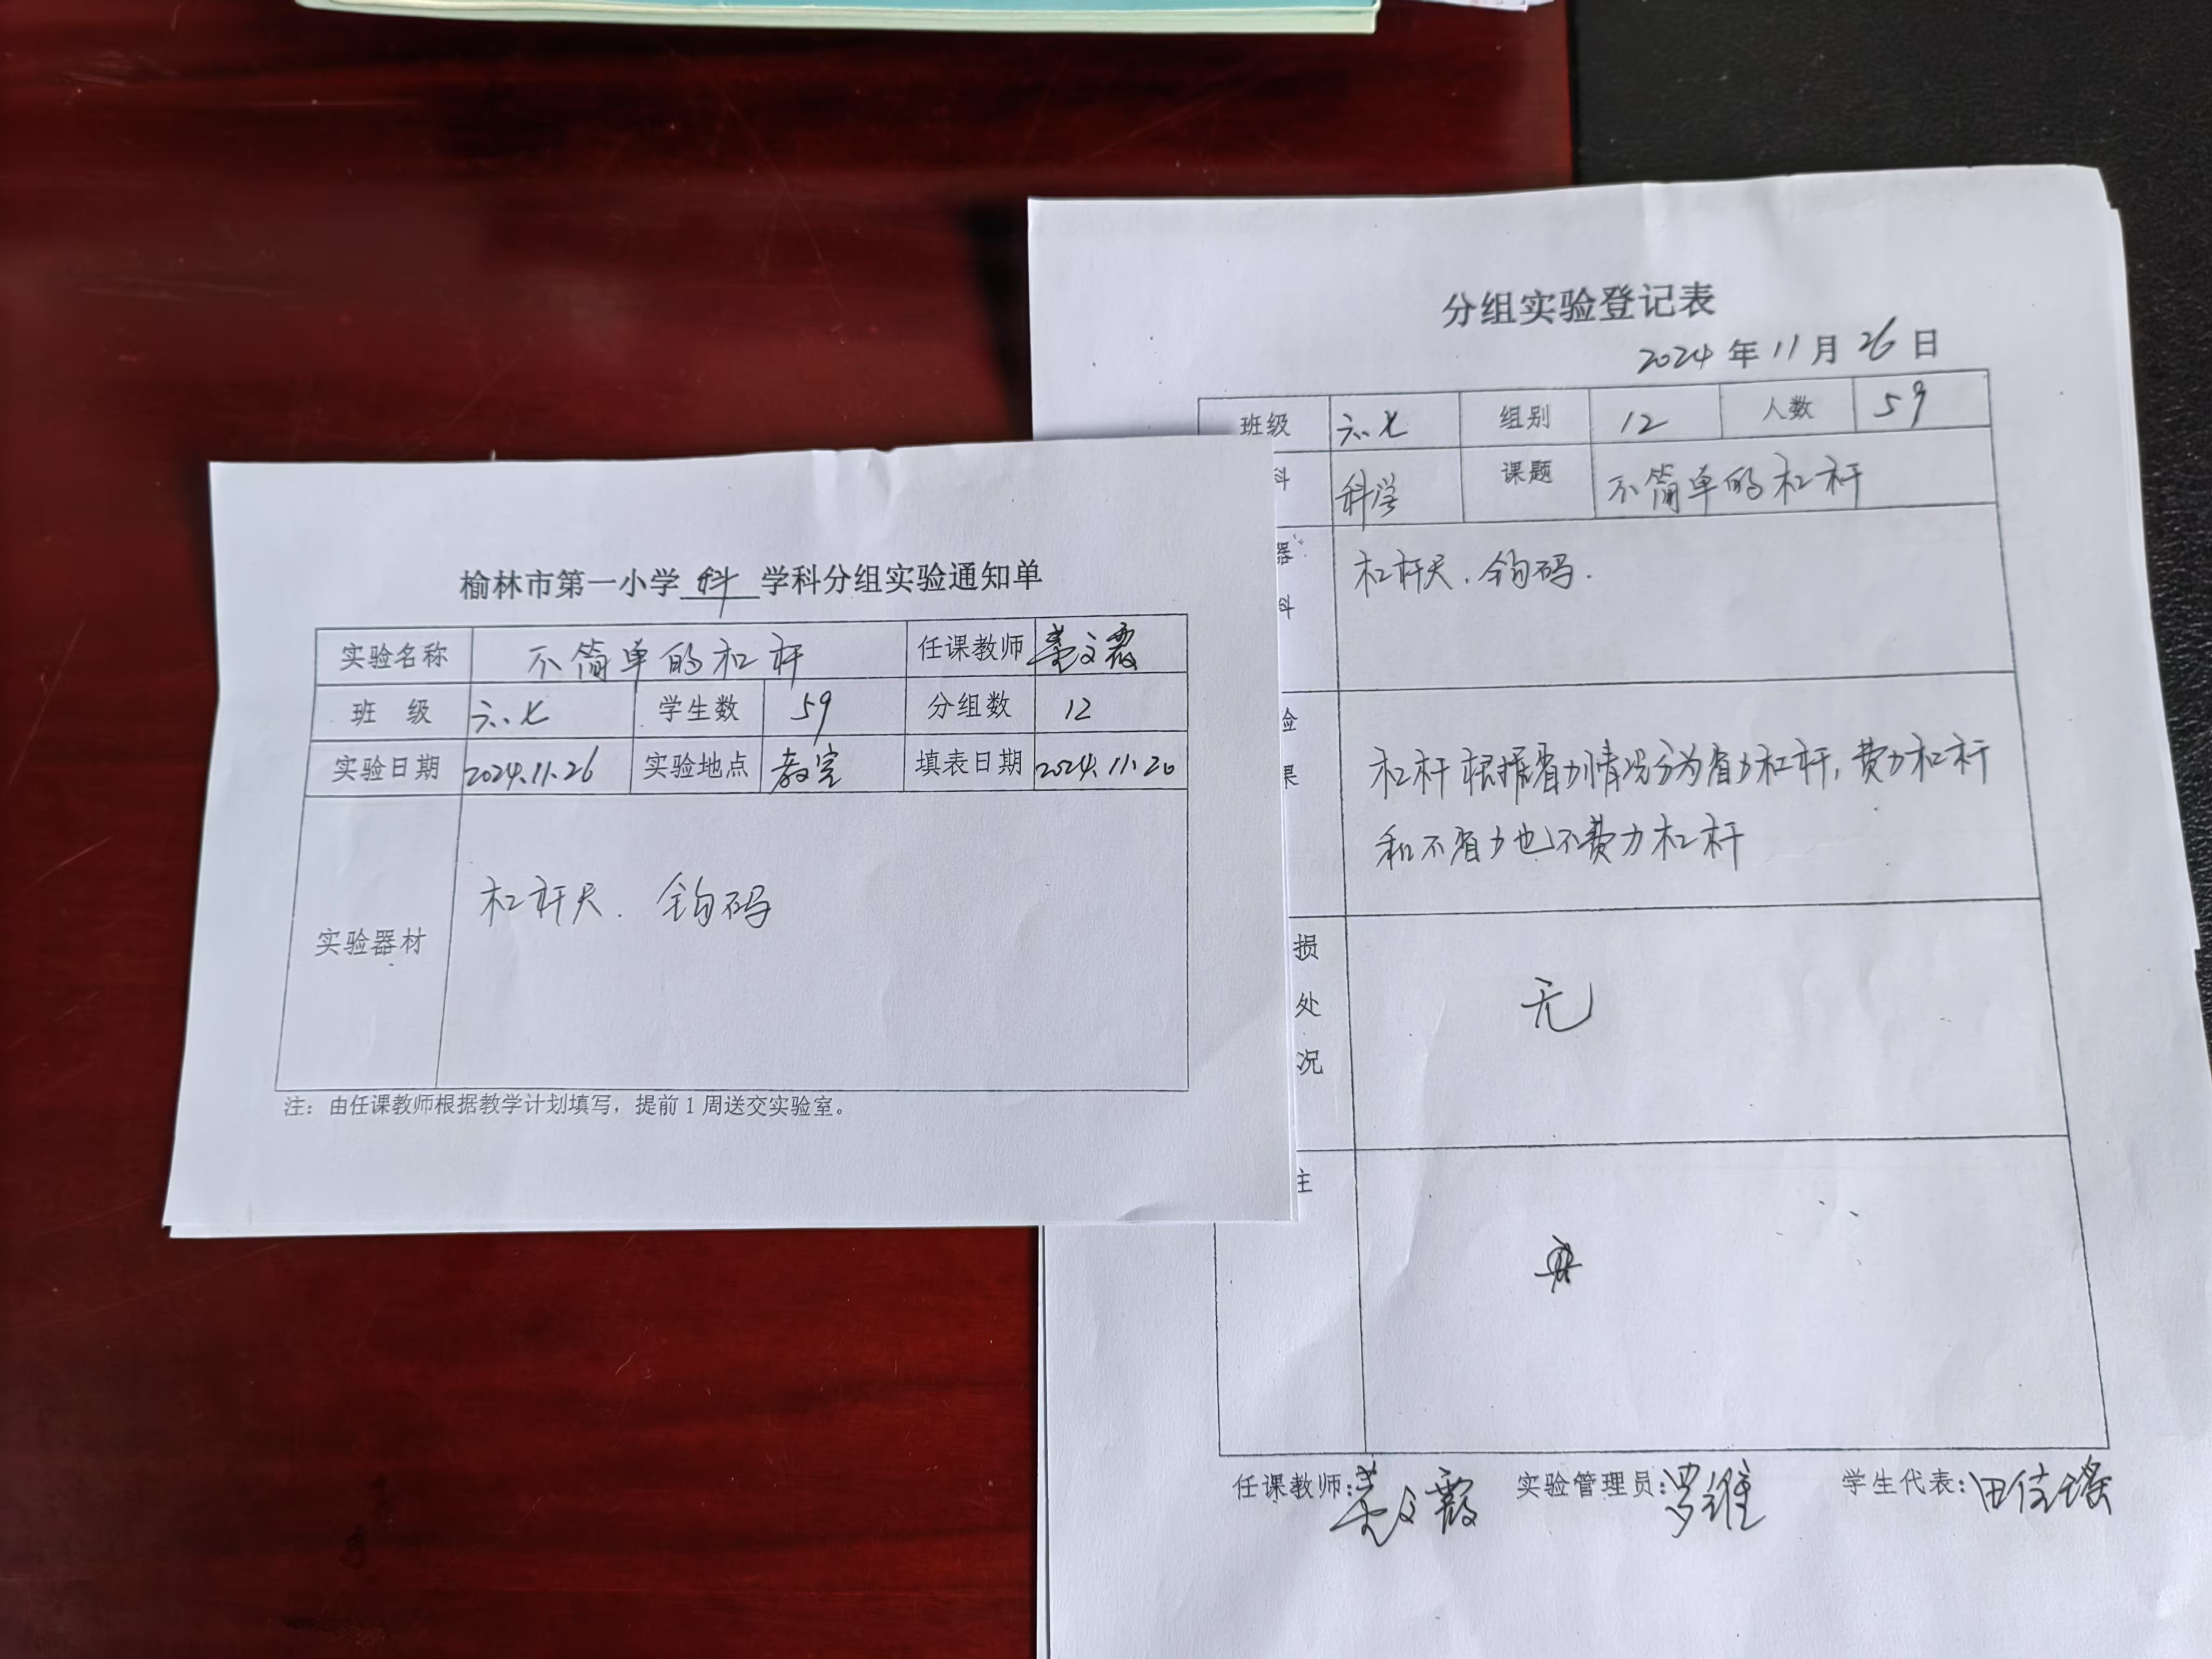 榆林市第一小学 科 学科分组实验通知单
实验名称 不简单的杠杆 任课教师 姜文霞
班级 六.七 学生数 59 分组数 12
实验日期 2024.11.26 实验地点 教室 填表日期 2024.11.20
实验器材 杠杆尺. 钩码
注：由任课教师根据教学计划填写，提前1周送交实验室。
分组实验登记表
2024 年 11 月 26 日
班级 六.七 组别 12 人数 59
科 科学 课题 不简单的杠杆
器 杠杆尺. 钩码.
料
验 杠杆根据省力情况分为省力杠杆, 费力杠杆
果 和不省力也不费力杠杆
损
处 无
况
任课教师: 姜文霞 实验管理员: 罗维 学生代表: 田佳瑶